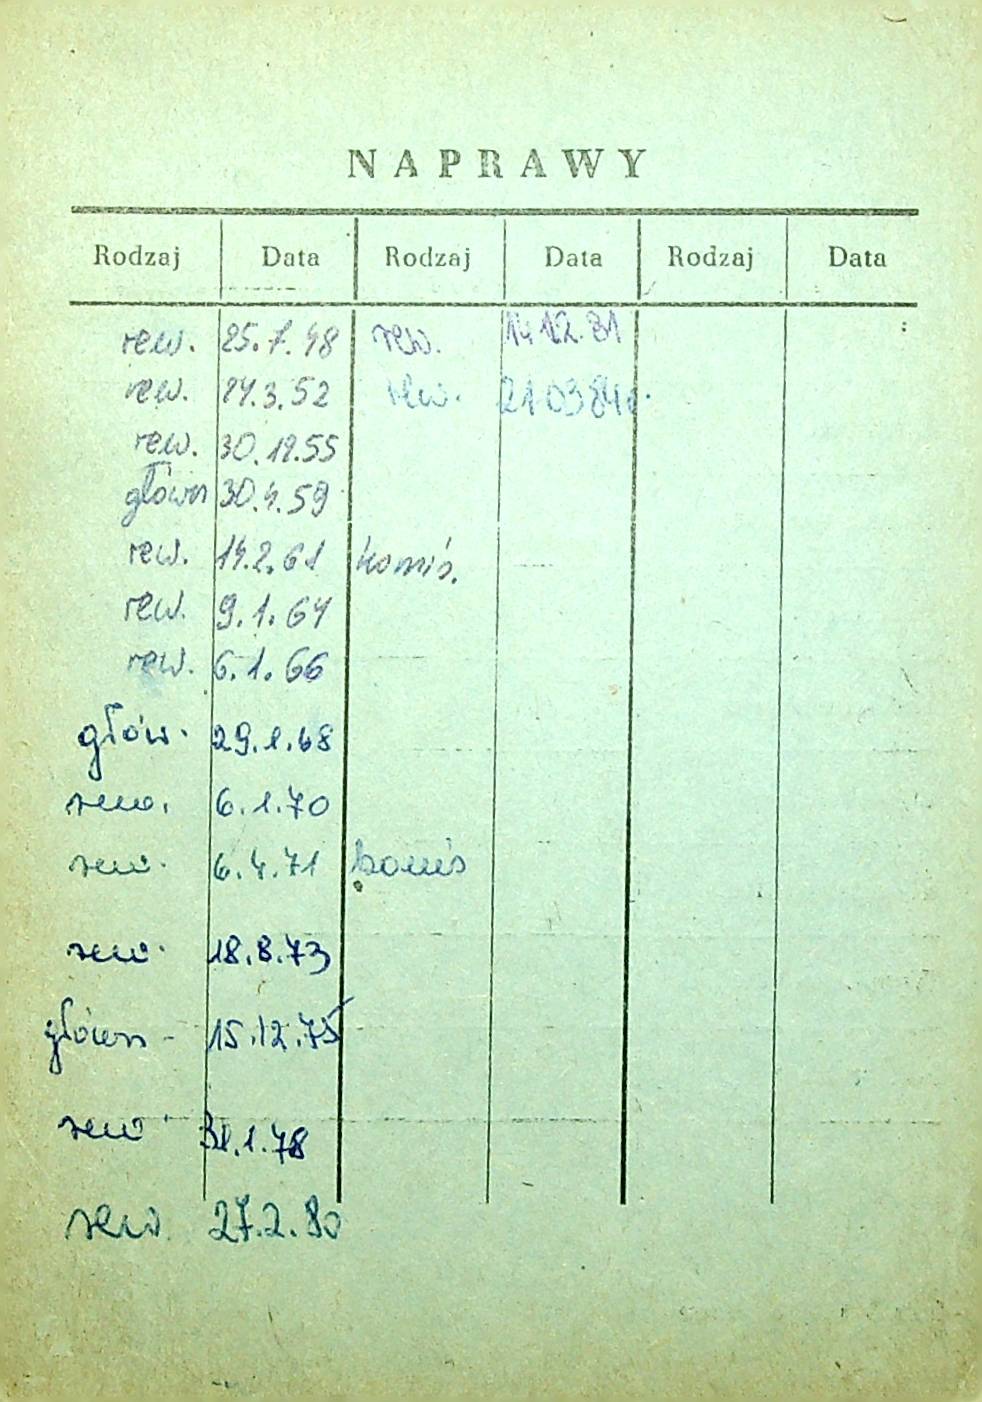 NAPRAWY
Rodzaj Data Rodzaj Data Rodzaj Data
rew. 25.7.48 rew. 14.12.81
rew. 24.3.52 rew. 210384r.
rew. 30.12.55
główn 30.4.59
rew. 14.2.61 komis.
rew. 9.1.64
rew. 6.1.66
głów. 29.1.68
rew. 6.1.70
rew. 6.4.71 komis
rew. 18.8.73
główn - 15.12.75
rew. 31.1.78
rew. 27.2.80